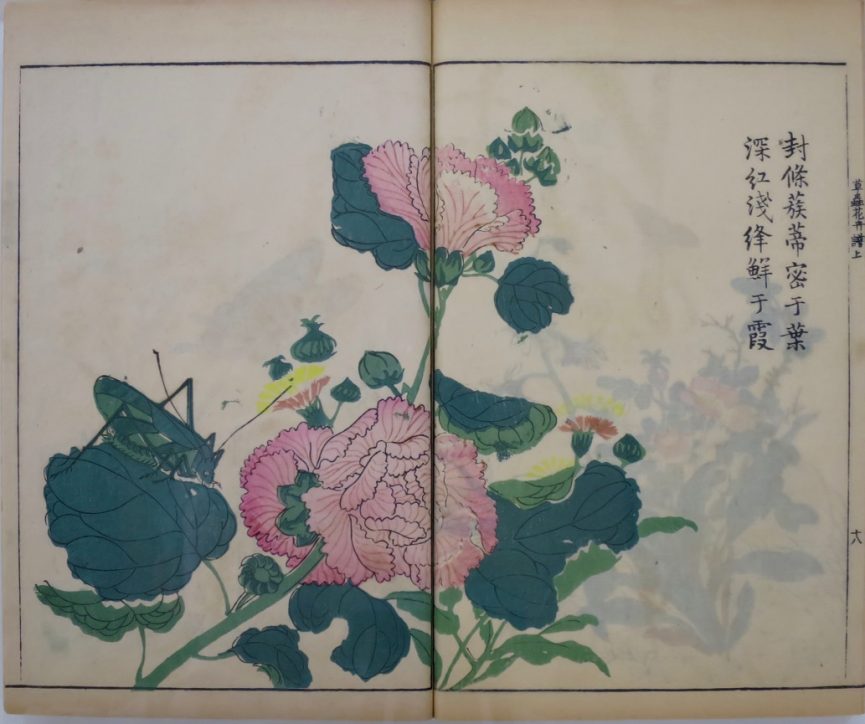 封條蔟蒂密于葉
深紅淺絳鮮于霞
草蟲花卉譜上
六